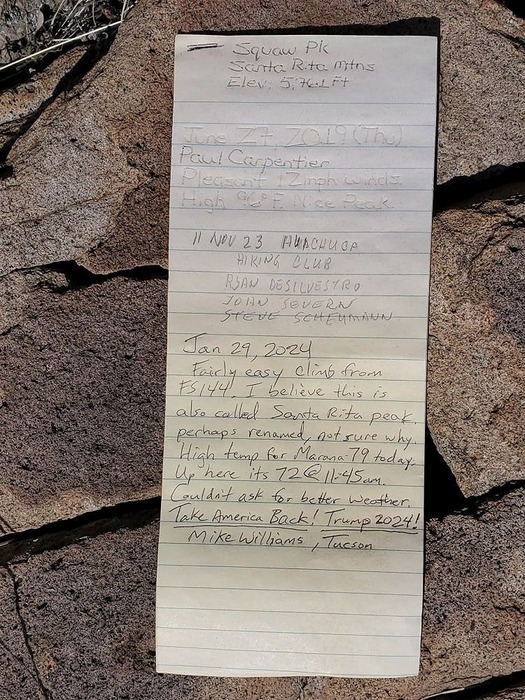 Squaw Pk
Santa Rita Mtns
Elev: 5,761 Ft
June 27, 2019 (Thu)
Paul Carpentier
Pleasant 12mph winds.
High 96° F. Nice Peak
11 NOV 23 HUACHUCA
HIKING CLUB
RYAN DESILVESTRO
JOHN SEVERN
STEVE SCHEUMANN
Jan 29, 2024
Fairly easy climb from
FS144. I believe this is
also called Santa Rita peak.
perhaps renamed, not sure why.
High temp for Marana 79 today.
Up here its 72 @ 11:45am.
Couldn't ask for better weather.
Take America Back! Trump 2024!
Mike Williams, Tucson